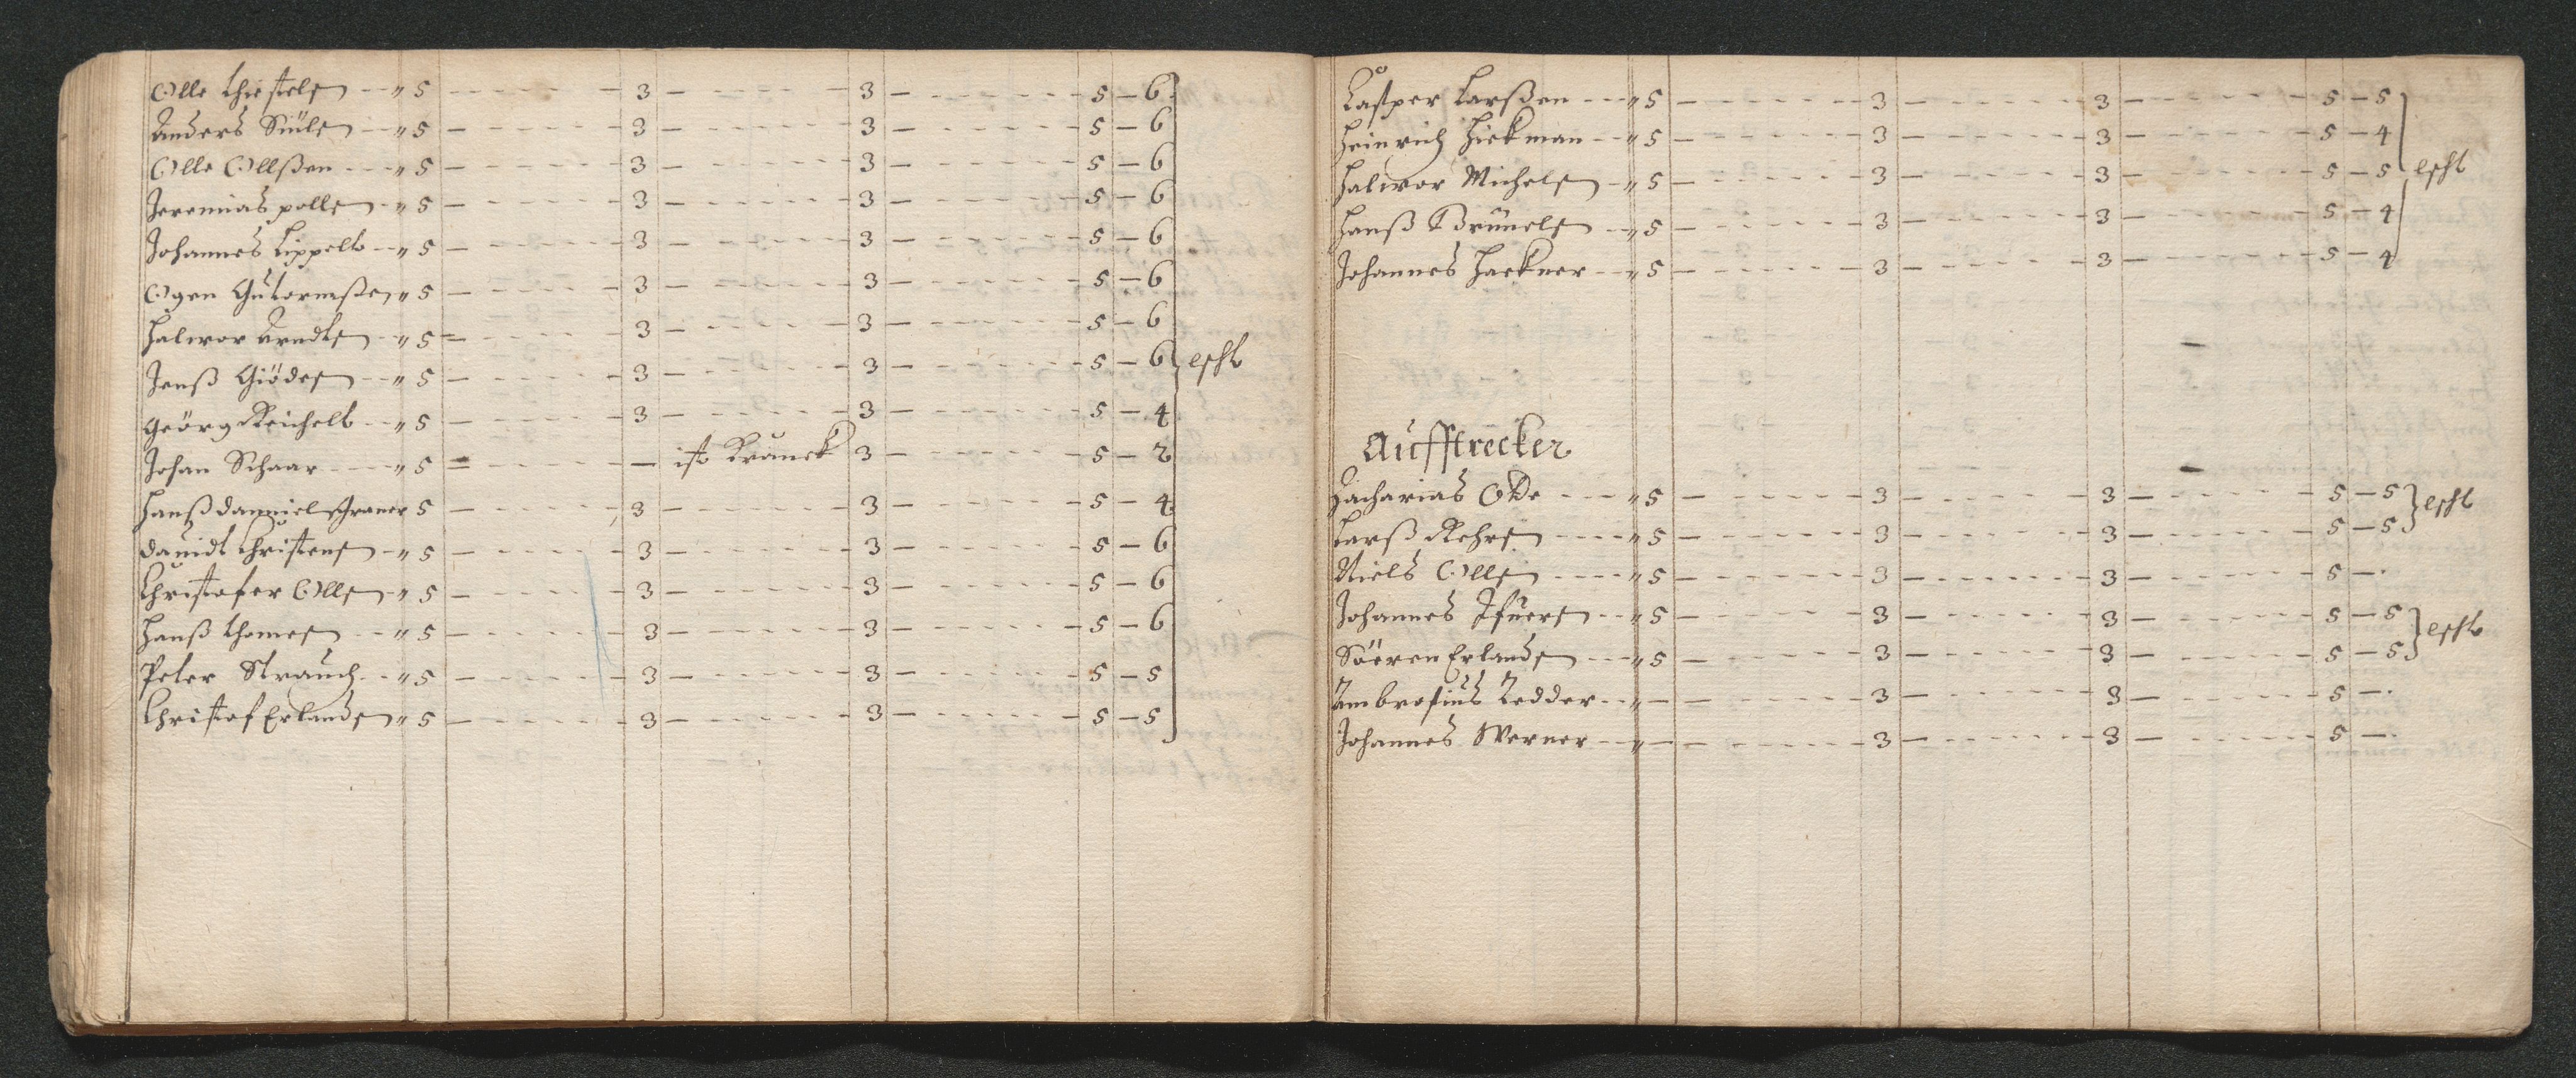 Olle Thostels -- " 5 - - - - - - 3 - - - - - 3 - - - - - - 5 - 6
Anders Siüls -- " 5 - - - - - - 3 - - - - - 3 - - - - - - 5 - 6
Olle Ollßen -- " 5 - - - - - - 3 - - - - - 3 - - - - - - 5 - 6
Jeremias polls -- " 5 - - - - - - 3 - - - - - 3 - - - - - - 5 - 6
Johannes Lippelt -- " 5 - - - - - - 3 - - - - - 3 - - - - - - 5 - 6
Ogen Gutormßen " 5 - - - - - - 3 - - - - - 3 - - - - - - 5 - 6
Halwor Arndts -- " 5 - - - - - - 3 - - - - - 3 - - - - - - 5 - 6
Jenß Giödes -- " 5 - - - - - - 3 - - - - - 3 - - - - - - 5 - 6
Geörg Reichelt -- " 5 - - - - - - 3 - - - - - 3 - - - - - - 5 - 4
Johan Schaar ---- " 5 - - - - - - ist Kranck 3 - - - - - - 5 - 2
Hanß danniel 5 - - - - - - 3 - - - - - 3 - - - - - - 5 - 4
dauidt Christens -- " 5 - - - - - - 3 - - - - - 3 - - - - - - 5 - 6
Christofer Olls -- " 5 - - - - - - 3 - - - - - 3 - - - - - - 5 - 6
Hanß Thomes -- " 5 - - - - - - 3 - - - - - 3 - - - - - - 5 - 6
Peter Strauch -- " 5 - - - - - - 3 - - - - - 3 - - - - - - 5 - 5
Christof Erlands " 5 - - - - - - 3 - - - - - 3 - - - - - - 5 - 5
Casper Larßen --- " 5 - - - - - - 3 - - - - - 3 - - - - - - 5 - 5
Heinrich Hickman -- " 5 - - - - - - 3 - - - - - 3 - - - - - - 5 - 4
Halwor Michels -- " 5 - - - - - - 3 - - - - - 3 - - - - - - 5 - 5
Hanß Brünels -- " 5 - - - - - - 3 - - - - - 3 - - - - - - 5 - 4
Johannes Hackner -- " 5 - - - - - - 3 - - - - - 3 - - - - - - 5 - 4
Auffstrecker
Zacharias Ode --- " 5 - - - - - - 3 - - - - - 3 - - - - - - 5 - 5
Larß Rehrs ---- " 5 - - - - - - 3 - - - - - 3 - - - - - - 5 - 5
Niels Olls ---- " 5 - - - - - - 3 - - - - - 3 - - - - - - 5 -
Johannes Ifuers -- " 5 - - - - - - 3 - - - - - 3 - - - - - - 5 - 5
Söeren Erlands --- " 5 - - - - - - 3 - - - - - 3 - - - - - - 5 - 5
Ambrosius Zedder -- " - - - - - - 3 - - - - - 3 - - - - - - 5 -
Johannes Werner -- " - - - - - - 3 - - - - - 3 - - - - - - 5 -